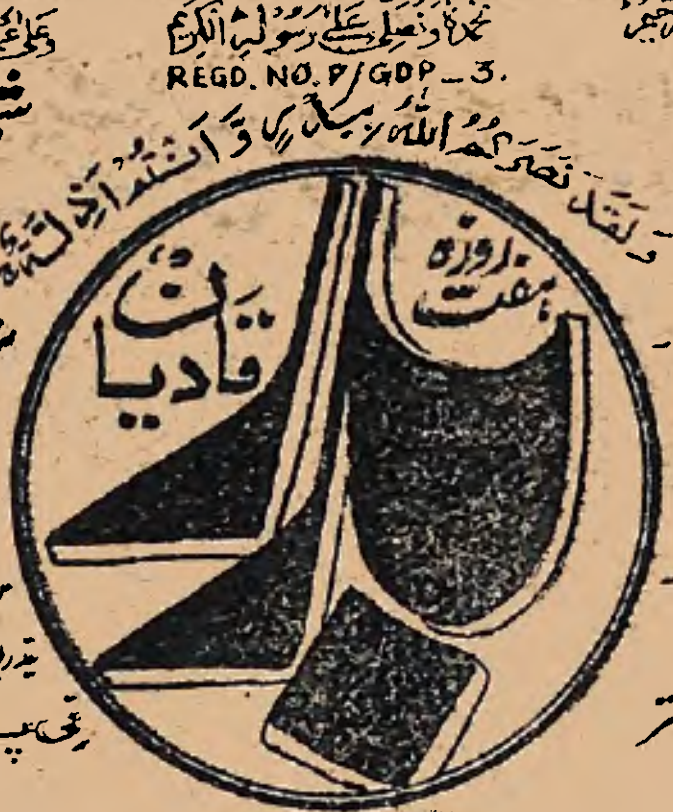 نحمدہ ونصلی علیٰ رسولہ الکریم
REGD. NO. P/GDP-3.
وَلَقَدْ نَصَرَكُمُ اللّٰهُ بِبَدْرٍ وَّاَنْتُمْ اَذِلَّةٌ
ہفت روزہ
بدر
قادیان